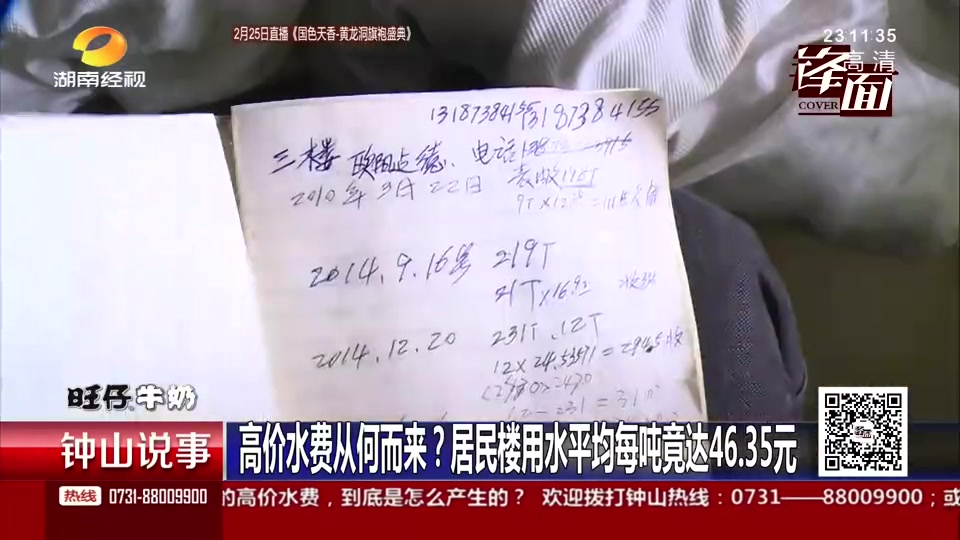 2月25日直播《国色天香-黄龙洞旗袍盛典》
23:11:35
高清
湖南经视
锋面
COVER
13187384155
13187384155
三楼 欧阳 德、电话
2010年9月22日
2014.9.16号 219T
21T×16.92
2014.12.20 231T.12T
12×24.5391=294.5 收
旺仔牛奶
钟山说事
高价水费从何而来？居民楼用水平均每吨竟达46.35元
热线 0731-88009900
的高价水费，到底是怎么产生的？ 欢迎拨打钟山热线：0731——88009900；或